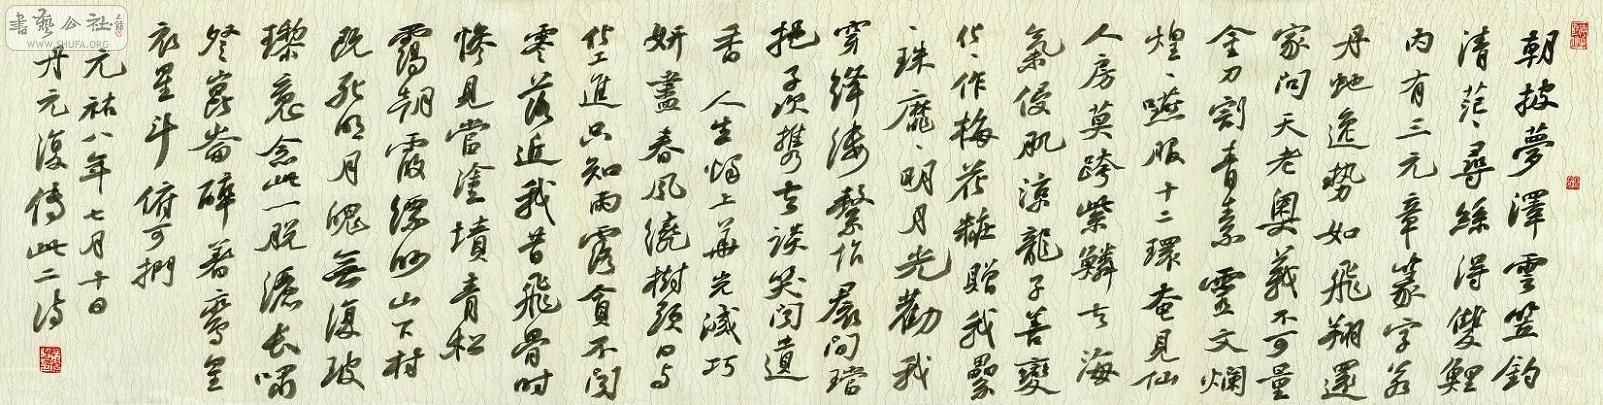 朝披夢澤雲笠釣
清茫、尋絲得雙鯉
內有三元章篆字若
丹虵逸勢如飛翔還
家問天老奧義不可量
金刀割青素靈文爛
煌、嚥服十二環奄見仙
人房莫跨紫鱗去海
氣侵肌涼龍子善變
化、作梅花粧贈我纍
、珠靡、明月光勸我
穿絳縷繫作裙間璫
挹子以携去談笑聞遺
香 人生燭上華光滅巧
妍盡春風繞樹頭日與
化工進只知雨露貪不聞
零落近我昔飛骨時
慘見當塗墳青松
靄朝霞縹緲山下村
既死明月魄無復玻
瓈魂念此一脫灑長嘯
登崑崙醉著鸞皇
衣星斗俯可捫
元祐八年七月十日
丹元復傳此二詩
書藝公社
WWW.SHUFA.ORG